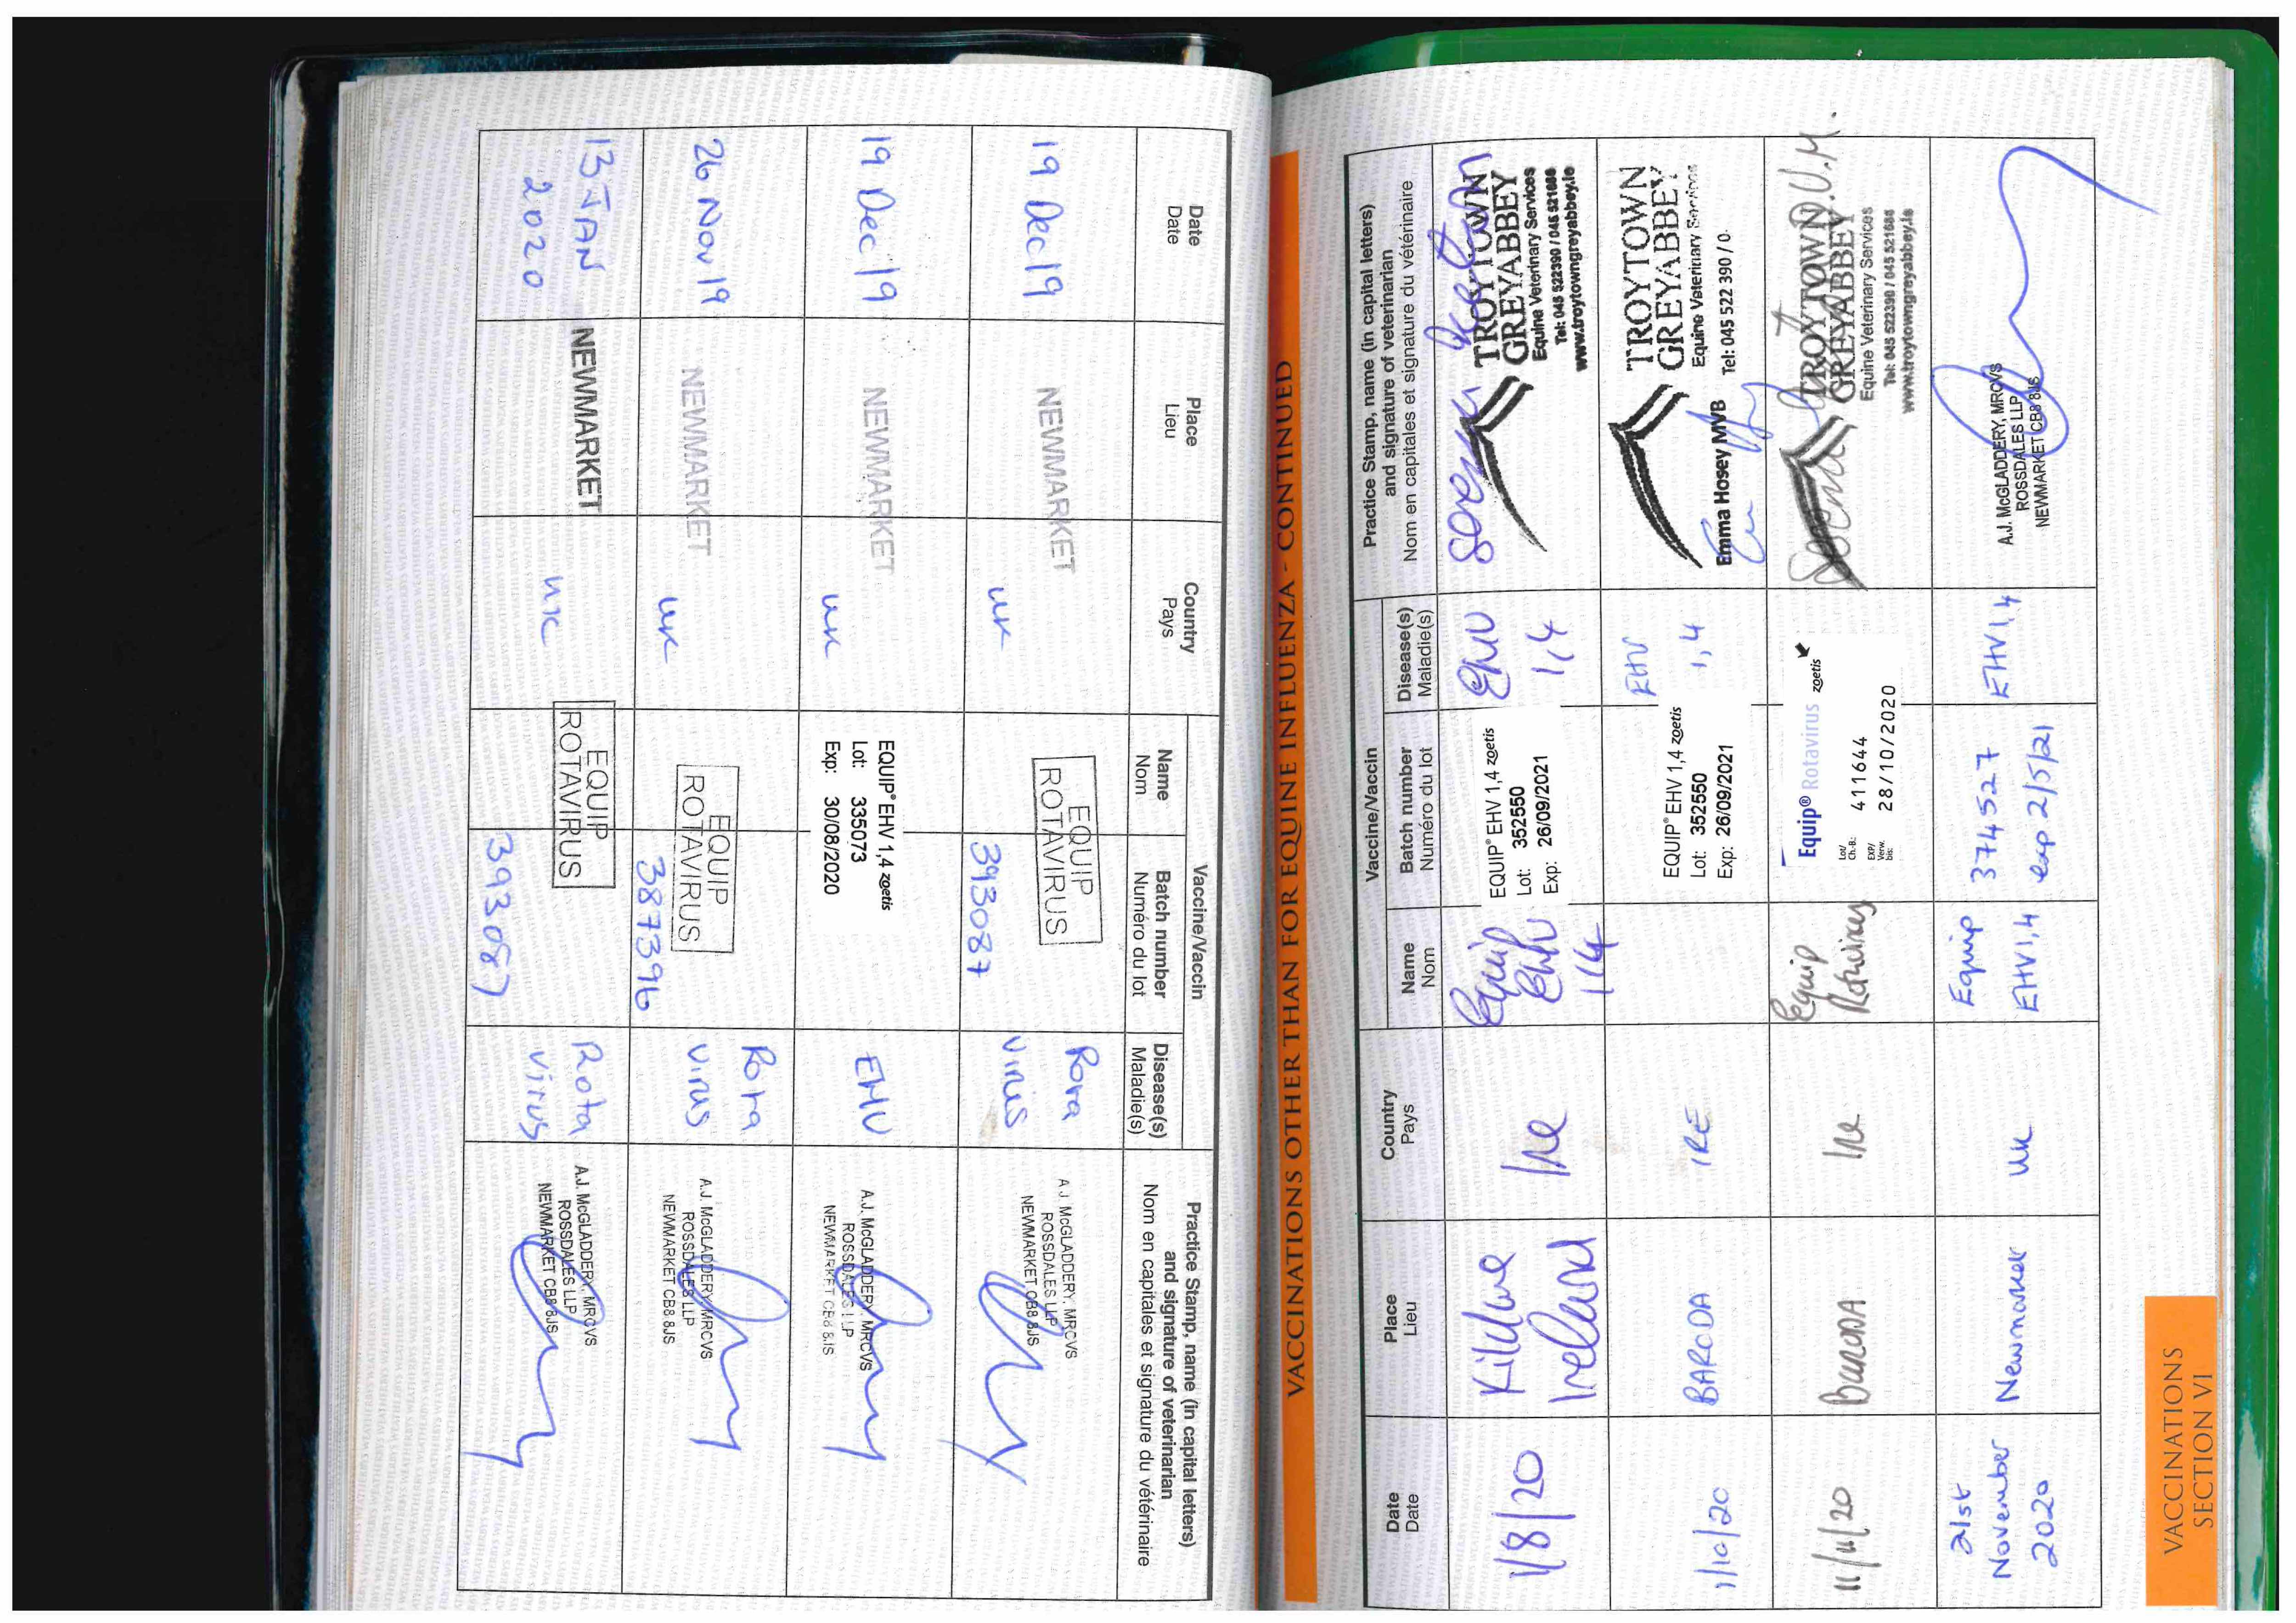 Date
Date
Place
Lieu
Country
Pays
Vaccine/Vaccin
Name
Nom
Batch number
Numéro du lot
Disease(s)
Maladie(s)
Practice Stamp, name (in capital letters)
and signature of veterinarian
Nom en capitales et signature du vétérinaire
19 Dec 19
NEWMARKET
UK
EQUIP
ROTAVIRUS
393087
Rota
virus
A.J. McGLADDERY, MRCVS
ROSSDALES LLP
NEWMARKET CB8 8JS
19 Dec 19
NEWMARKET
UK
EQUIP® EHV 1,4 zoetis
Lot: 335073
Exp: 30/08/2020
EHV
A.J. McGLADDERY, MRCVS
ROSSDALES LLP
NEWMARKET CB8 8JS
26 Nov 19
NEWMARKET
UK
EQUIP
ROTAVIRUS
387396
Rota
virus
A.J. McGLADDERY, MRCVS
ROSSDALES LLP
NEWMARKET CB8 8JS
13 JAN
2020
NEWMARKET
UK
EQUIP
ROTAVIRUS
393087
Rota
virus
A.J. McGLADDERY, MRCVS
ROSSDALES LLP
NEWMARKET CB8 8JS
VACCINATIONS OTHER THAN FOR EQUINE INFLUENZA - CONTINUED
Date
Date
Place
Lieu
Country
Pays
Vaccine/Vaccin
Name
Nom
Batch number
Numéro du lot
Disease(s)
Maladie(s)
Practice Stamp, name (in capital letters)
and signature of veterinarian
Nom en capitales et signature du vétérinaire
1/8/20
Kildare
Ireland
Ire
Equip
EHV
1,4
EQUIP® EHV 1,4 zoetis
Lot: 352550
Exp: 26/09/2021
EHV
1,4
TROYTOWN
GREYABBEY
Equine Veterinary Services
Tel: 045 522390 / 045 521686
www.troytowngreyabbey.ie
1/10/20
BARODA
IRE
EQUIP® EHV 1,4 zoetis
Lot: 352550
Exp: 26/09/2021
EHV
1,4
TROYTOWN
GREYABBEY
Equine Veterinary Services
Emma Hosey MVB Tel: 045 522 390 / 0
11/11/20
BARODA
Ire
Equip
Rotavirus
Equip® Rotavirus zoetis
Lot/
Ch.-B.: 411644
EXP/
Verw.
bis: 28/10/2020
TROYTOWN
GREYABBEY
Equine Veterinary Services
Tel: 045 522390 / 045 521686
www.troytowngreyabbey.ie
21st
November
2020
Newmarket
UK
Equip
EHV1,4
374527
exp 2/5/21
EHV1,4
A.J. McGLADDERY, MRCVS
ROSSDALES LLP
NEWMARKET CB8 8JS
VACCINATIONS
SECTION VI